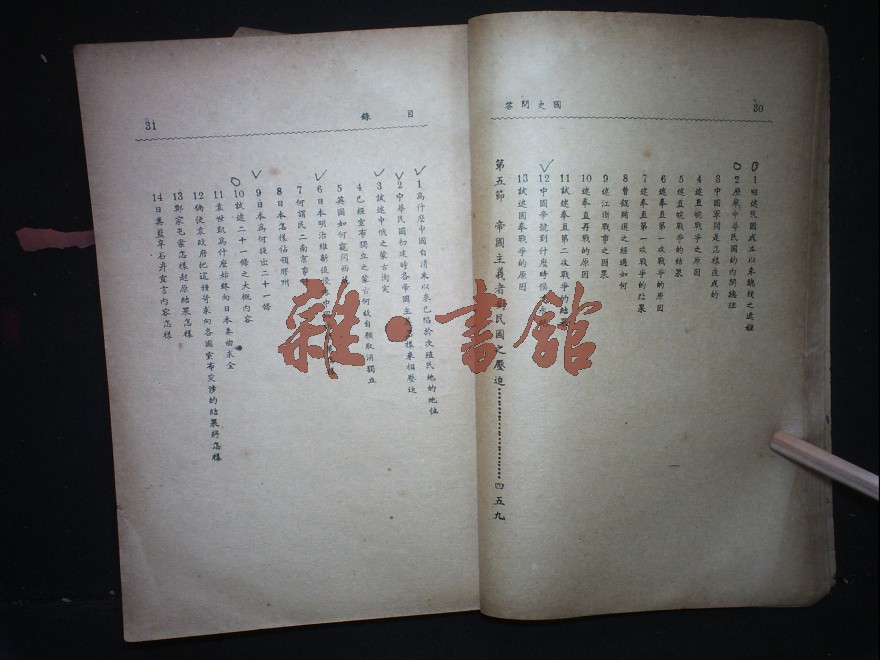 國史問答
30
1略述民國成立以來總統之遞嬗
2歷舉中華民國的內閣總理
3中國軍閥是怎樣造成的
4述直皖戰爭之原因
5述直皖戰爭的結果
6述奉直第一次戰爭的原因
7述奉直第一次戰爭的結果
8曹錕賄選之經過如何
9述江浙戰事之因果
10述奉直再戰的原因
11試述奉直第二次戰爭的結果
12中國帝號到什麼時候
13試述國奉戰爭的原因
第五節 帝國主義者對民國之壓迫 四五九
目錄
31
1為什麼中國自清末以來已陷於次殖民地的地位
2中華民國初建時各帝國主義 樣來相壓迫
3試述中俄之蒙古衝突
4已經宣布獨立之蒙古何故自願取消獨立
5英國如何窺伺西
6日本明治維新值
7何謂民二南京事
8日本怎樣佔領膠州
9日本為何提出二十一條
10試述二十一條之大概內容
11袁世凱為什麼始終向日本委曲求全
12倘使袁政府把這種苛求向各國宣布交涉的結果將怎樣
13鄭家屯案怎樣起原結果怎樣
14日美藍辛石井宣言內容怎樣
雜·書館